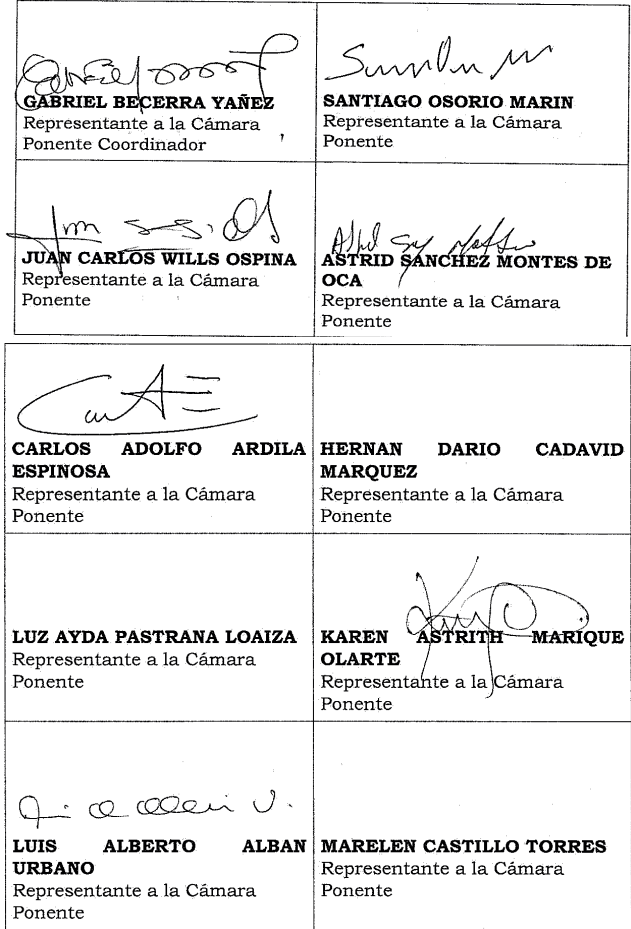 GABRIEL BECERRA YAÑEZ
Representante a la Cámara
Ponente Coordinador
SANTIAGO OSORIO MARIN
Representante a la Cámara
Ponente
JUAN CARLOS WILLS OSPINA
Representante a la Cámara
Ponente
ASTRID SANCHEZ MONTES DE
OCA
Representante a la Cámara
Ponente
CARLOS ADOLFO ARDILA
ESPINOSA
Representante a la Cámara
Ponente
HERNAN DARIO CADAVID
MARQUEZ
Representante a la Cámara
Ponente
LUZ AYDA PASTRANA LOAIZA
Representante a la Cámara
Ponente
KAREN ASTRITH MARIQUE
OLARTE
Representante a la Cámara
Ponente
LUIS ALBERTO ALBAN
URBANO
Representante a la Cámara
Ponente
MARELEN CASTILLO TORRES
Representante a la Cámara
Ponente